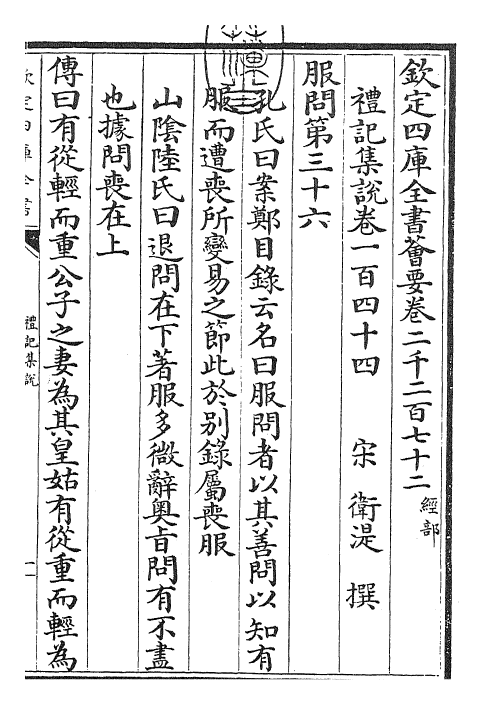 欽定四庫全書薈要卷二千二百七十二 經部
禮記集說卷一百四十四 宋 衛湜 撰
服問第三十六
孔氏曰案鄭目錄云名曰服問者以其善問以知有
服而遭喪所變易之節此於別錄屬喪服
山陰陸氏曰退問在下著服多微辭奧旨問有不盡
也據問喪在上
傳曰有從輕而重公子之妻為其皇姑有從重而輕為
禮記集說